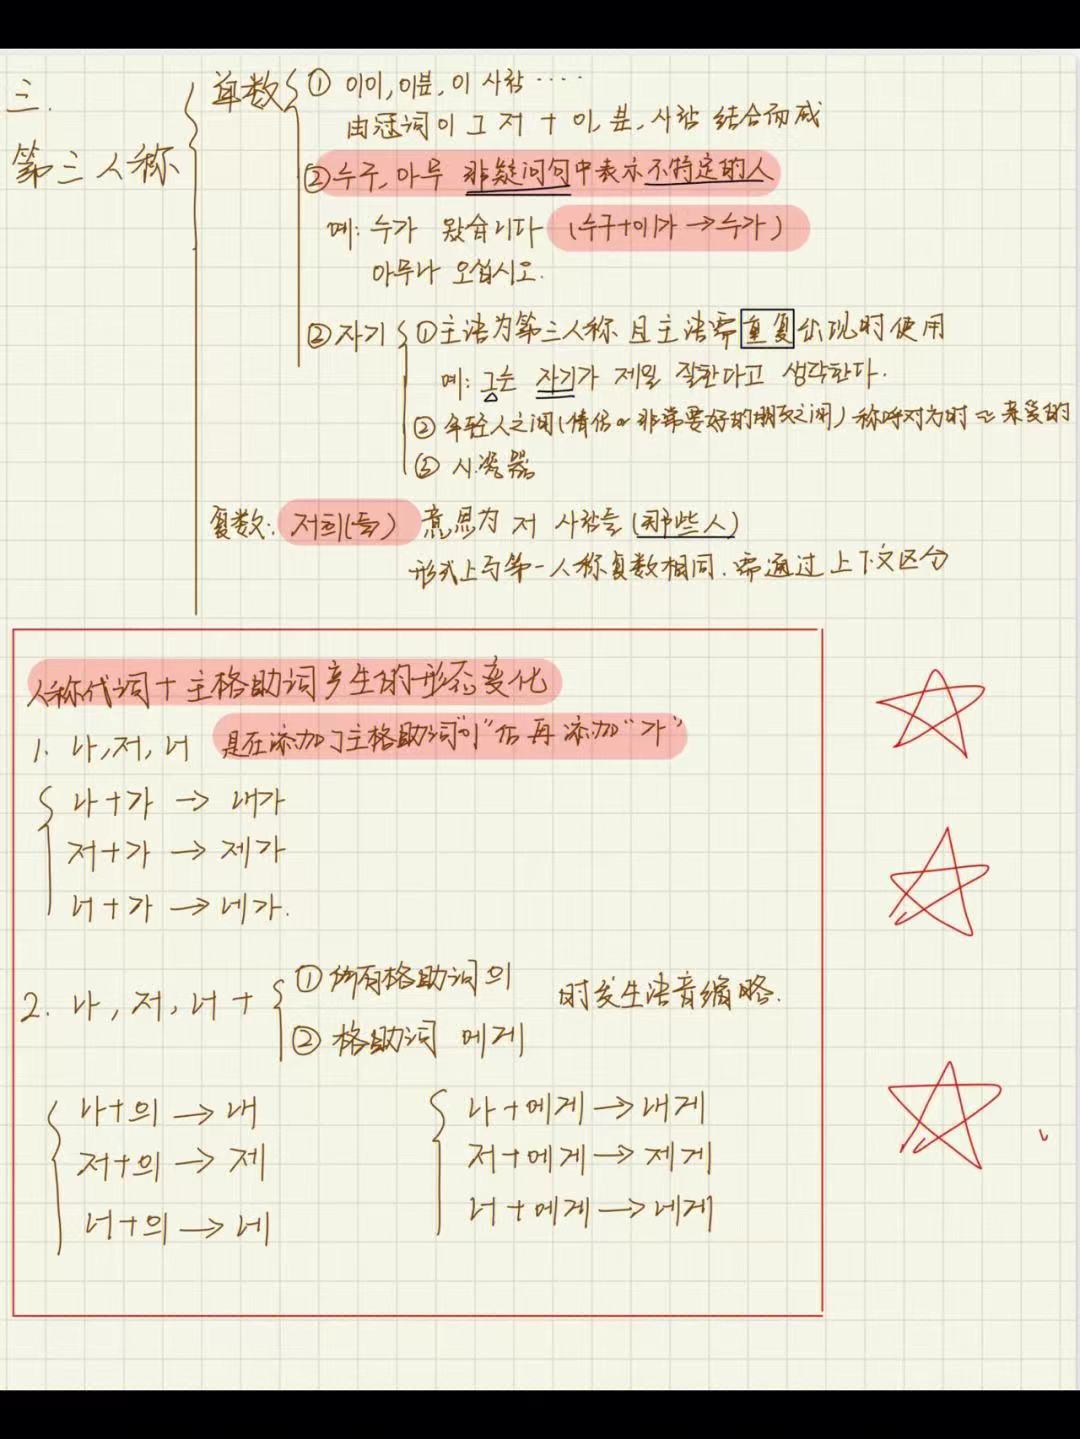 三.
第三人称
单数
① 이이, 이분, 이 사람 ····
由冠词 이 그 저 + 이, 분, 사람 结合而成
② 누구, 아무 非疑问句中表示不特定的人
예: 누가 왔습니다 (누구+이가→누가)
아무나 오십시오.
② 자기
① 主语为第三人称 且主语需重复出现时使用
예: 그는 자기가 제일 잘한다고 생각한다.
② 年轻人之间(情侣 or 非常要好的朋友之间) 称呼对方时 ≈ 亲爱的
③ 瓷器
复数: 저희(들) 意思为 저 사람들 (那些人)
形式上与第一人称复数相同. 需通过上下文区分
人称代词 + 主格助词产生的形态变化
1. 나, 저, 너 是在添加了主格助词"이"后再添加"가"
나+가 → 내가
저+가 → 제가
너+가 → 네가.
2. 나, 저, 너 +
① 所有格助词 의
② 格助词 에게
时发生语音缩略.
나+의 → 내
저+의 → 제
너+의 → 네
나+에게 → 내게
저+에게 → 제게
너+에게 → 네게